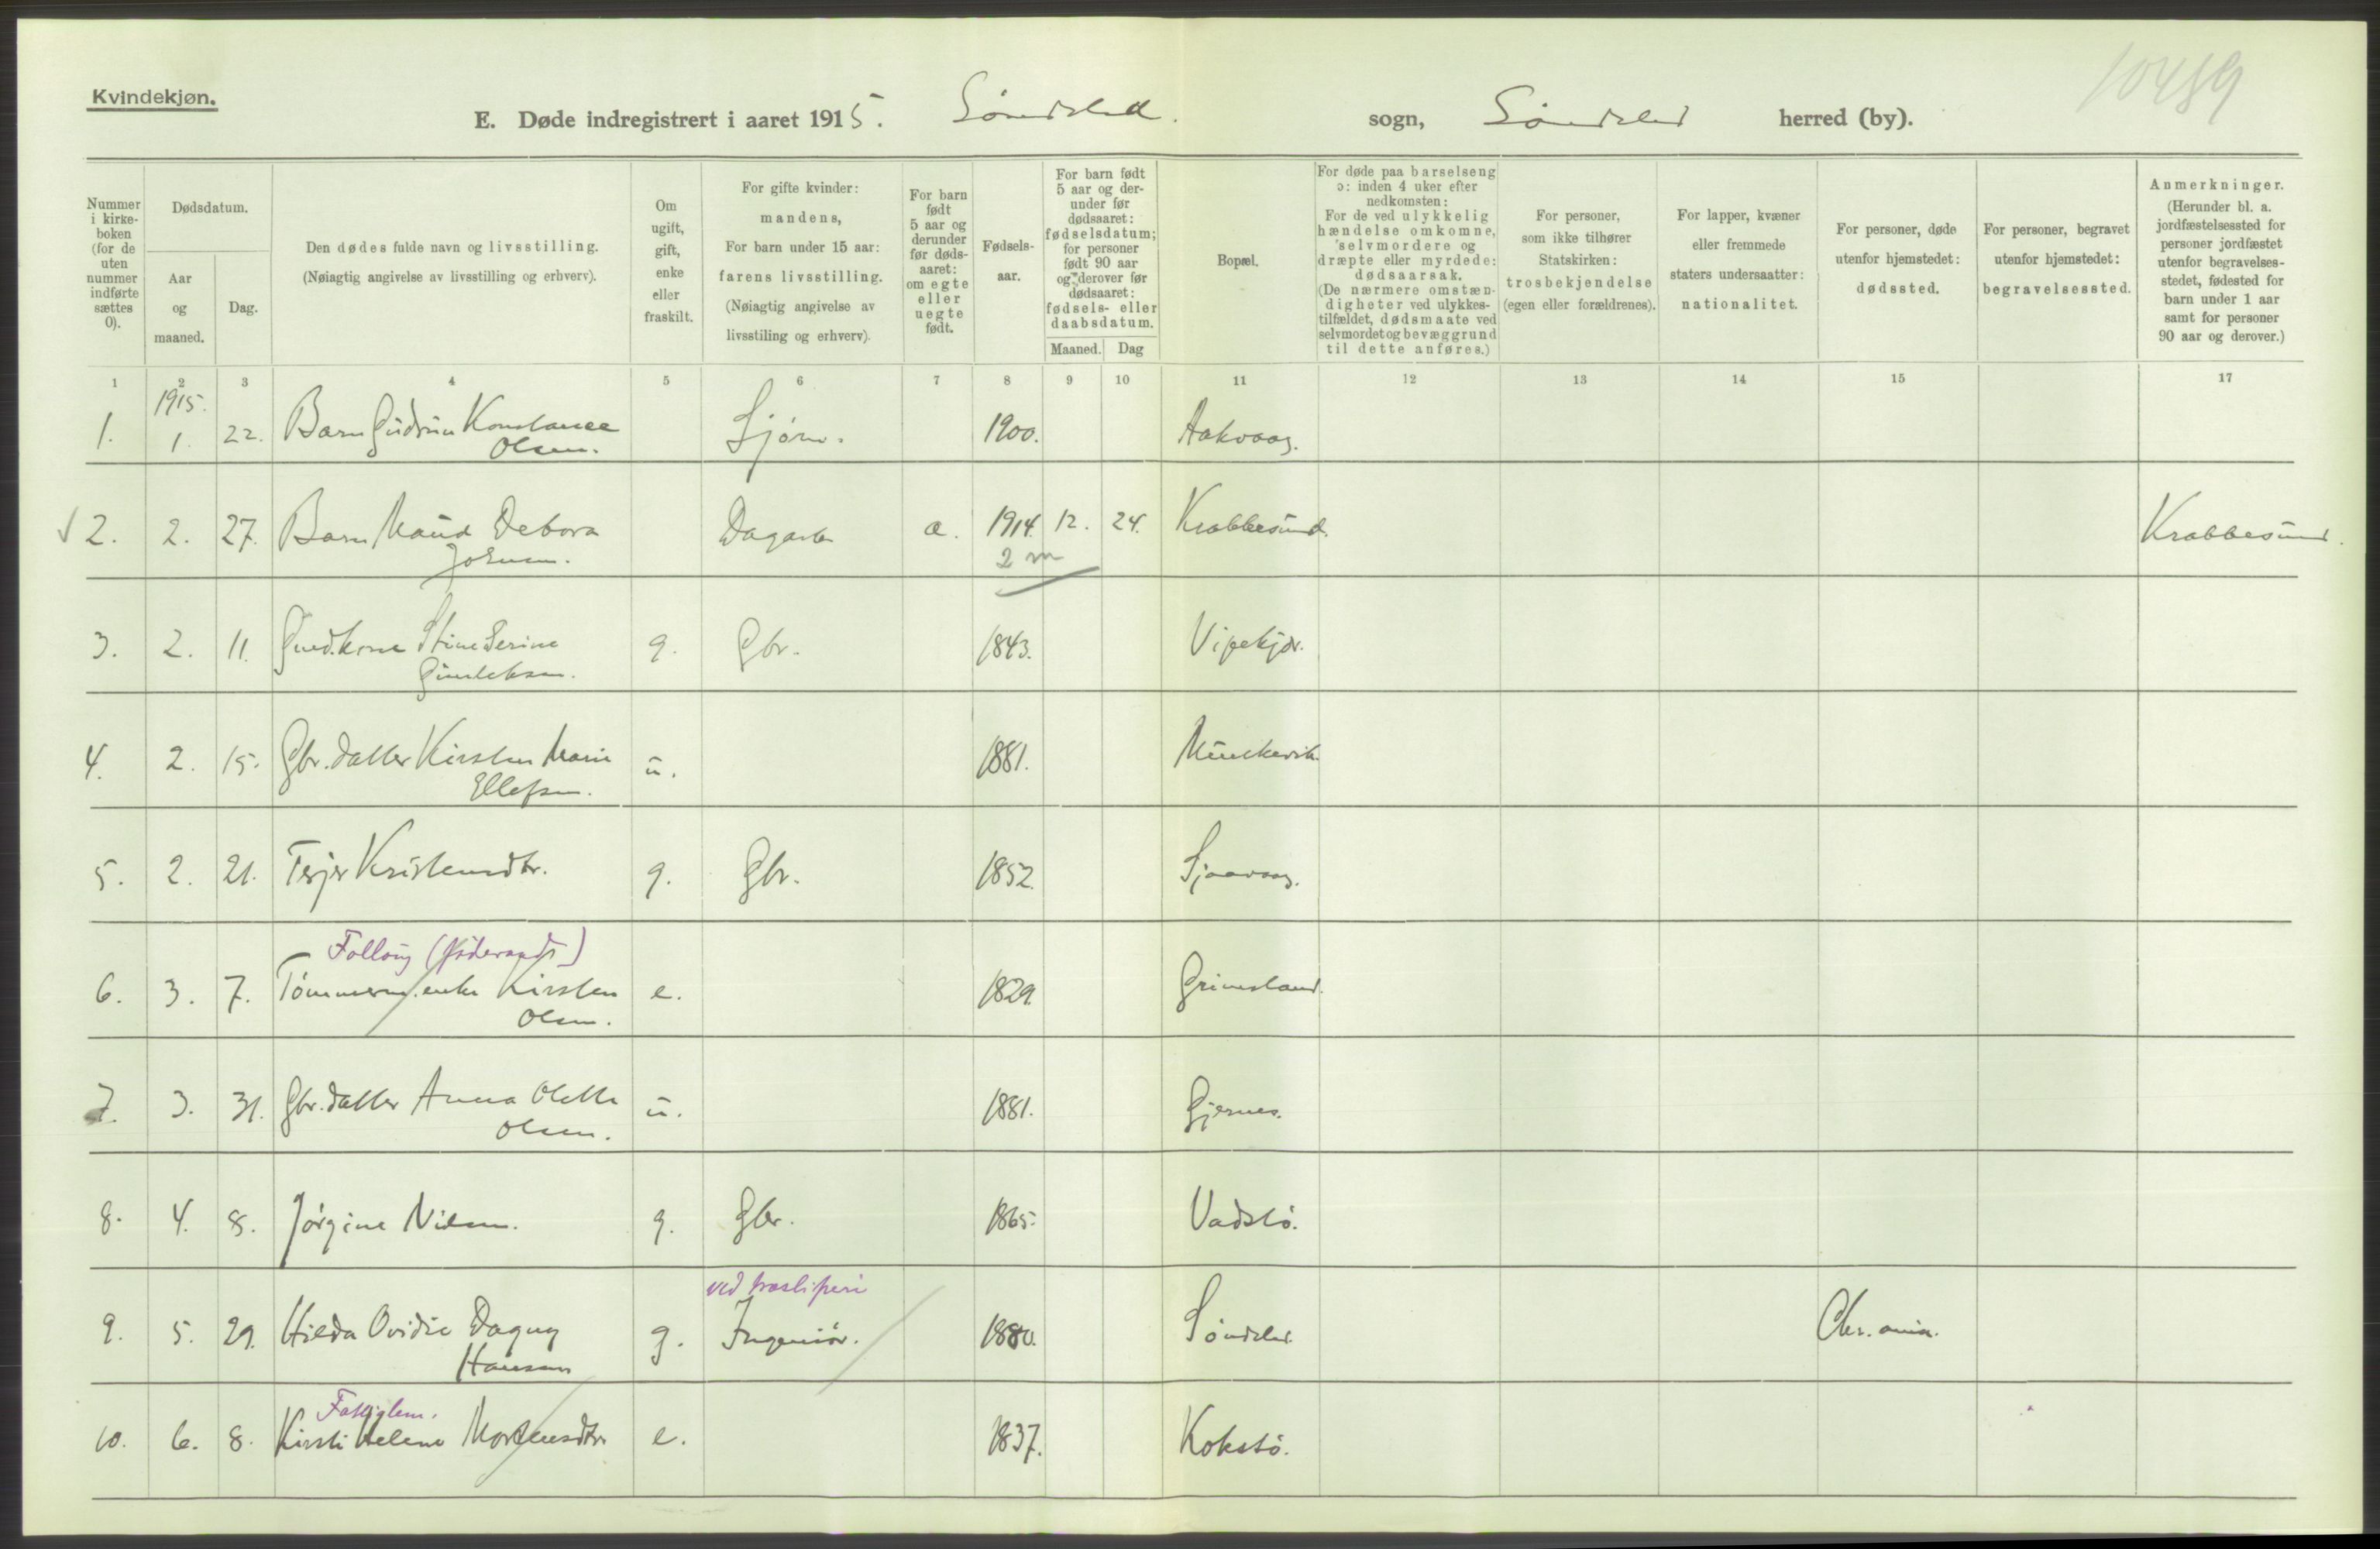 Kvindekjøn.
10489
E. Døde indregistrert i aaret 1915. Søndeled. sogn, Søndeled herred (by).
Nummer i kirke-boken (for de uten nummer indførte sættes 0).
Dødsdatum.
Aar og maaned.
Dag.
Den dødes fulde navn og livsstilling.
(Nøiagtig angivelse av livsstilling og erhverv).
Om ugift, gift, enke eller fraskilt.
For gifte kvinder: mandens,
For barn under 15 aar: farens livsstilling.
(Nøiagtig angivelse av livsstiling og erhverv).
For barn født 5 aar og derunder før døds-aaret: om egte eller uegte født.
Fødsels-aar.
For barn født 5 aar og der-under før dødsaaret: fødselsdatum; for personer født 90 aar og derover før dødsaaret: fødsels- eller daabsdatum.
Maaned. Dag
Bopæl.
For døde paa barselseng ɔ: inden 4 uker efter nedkomsten:
For de ved ulykkelig hændelse omkomne, selvmordere og dræpte eller myrdede: dødsaarsak.
(De nærmere omstæn-digheter ved ulykkes-tilfældet, dødsmaate ved selvmordet og bevæggrund til dette anføres.)
For personer, som ikke tilhører Statskirken: trosbekjendelse (egen eller forældrenes).
For lapper, kvæner eller fremmede staters undersaatter: nationalitet.
For personer, døde utenfor hjemstedet: dødssted.
For personer, begravet utenfor hjemstedet: begravelsessted.
Anmerkninger.
(Herunder bl. a. jordfæstelsessted for personer jordfæstet utenfor begravelses-stedet, fødested for barn under 1 aar samt for personer 90 aar og derover.)
1 2 3 4 5 6 7 8 9 10 11 12 13 14 15 17
1915.
1. 1. 22. Barn Gudrun Konstance Sjøm. 1900. Aakvaag.
Olsen.
√ 2. 2. 27. Barn Maud Debora Dagarb. a. 1914. 12. 24. Krabbesund. Krabbesund.
Johnsen. 2 m
3. 2. 11. Gaardkone Stine Serine g. Gbr. 1843. Vipekjær.
Gunleksen.
4. 2. 15. Gbr. datter Kirsten Marie u. 1881. Munkevik.
Ellefsen.
5. 2. 21. Terjer Kristensdtr. g. Gbr. 1852. Sjaavaag.
Follaug (Føderaads)
6. 3. 7. Tømmerm. enke Kirsten e. 1829. Grimsland.
Olsen.
7. 3. 31. Gbr. datter Anna Olette u. 1881. Gjernes.
Olsen.
8. 4. 8. Jørgine Nilsen. g. Gbr. 1865. Vadstø.
ved træsliperi
9. 5. 29. Hilda Ovidie Dagny g. Ingeniør. 1880. Søndeled. Chr.ania.
Hansen
Fattiglem.
10. 6. 8. Kirsti Helene Mortensdtr. e. 1837. Kokstø.